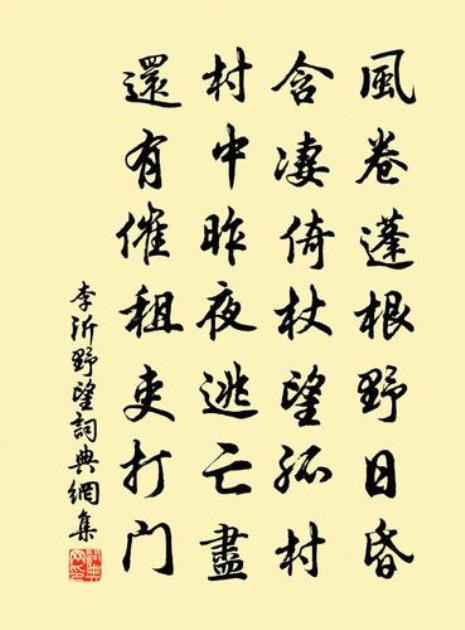 風卷蓬根野日昏
含凄倚杖望孤村
村中昨夜逃亡盡
還有催租吏打門
李沂野望詞典網集